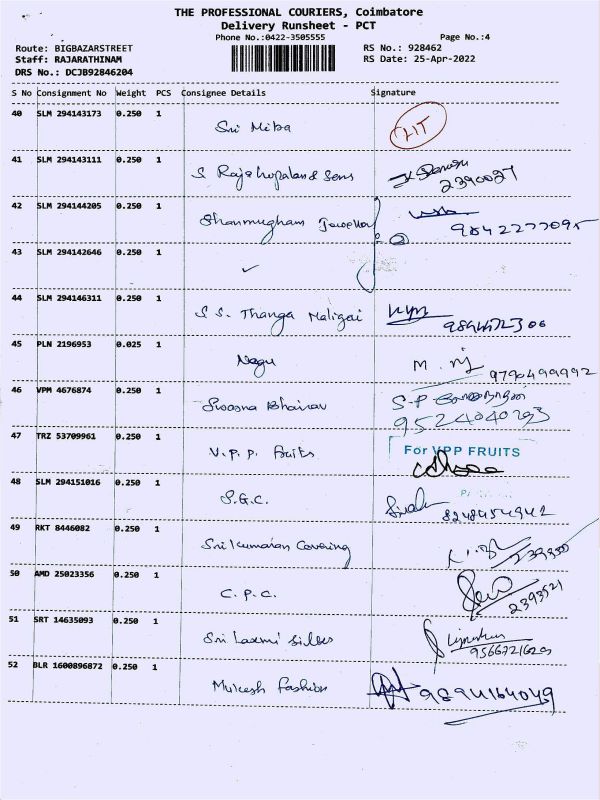 THE PROFESSIONAL COURIERS, Coimbatore
Delivery Runsheet - PCT
Phone No.:0422-3505555 Page No.:4
Route: BIGBAZARSTREET RS No.: 928462
Staff: RAJARATHINAM RS Date: 25-Apr-2022
DRS No.: DCJB92846204
S No Consignment No Weight PCS Consignee Details Signature
40 SLM 294143173 0.250 1 Sri Miba
41 SLM 294143111 0.250 1 S. Rajagopaland Sons
2390027
42 SLM 294144205 0.250 1 Shanmugham Jewellary
9842277095
43 SLM 294142646 0.250 1 ✓
44 SLM 294146311 0.250 1 S S. Thanga Maligai
45 PLN 2196953 0.025 1 Nagu M.
9790499992
46 VPM 4676874 0.250 1 Swarna Bhairav S-P
9524040293
47 TRZ 53709961 0.250 1 V.P.P. Fruits For VPP FRUITS
48 SLM 294151016 0.250 1 S.G.C.
8248454942
49 RKT 8446082 0.250 1 Sri Kumaran Covering
50 AMD 25023356 0.250 1 C.P.C.
2393521
51 SRT 14635093 0.250 1 Sri Laxmi Silks
9566721620
52 BLR 1600896872 0.250 1 Mukesh Fashion 9894164049